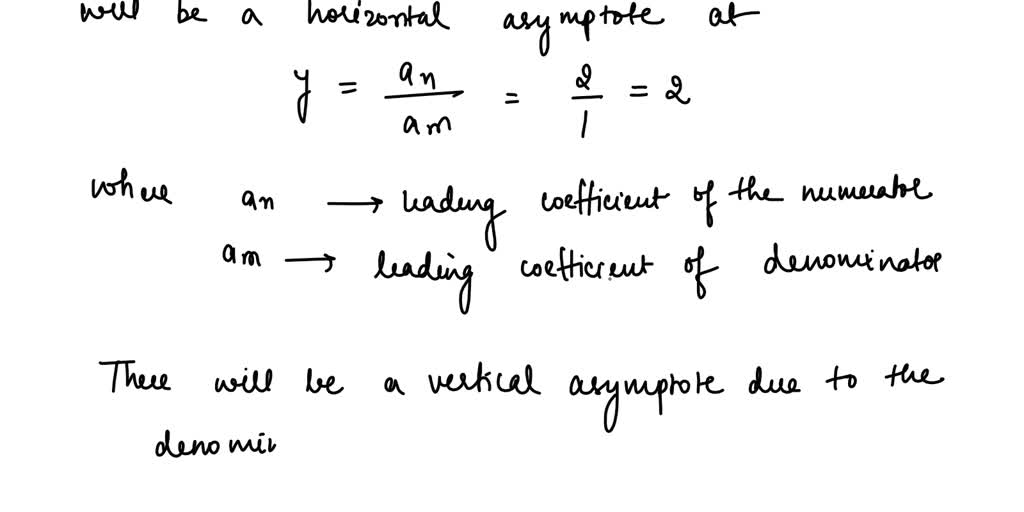 will be a horizontal asymptote at
y = an/am = 2/1 = 2
where an → leading coefficient of the numerator
am → leading coefficient of denominator
There will be a vertical asymptote due to the
denomi